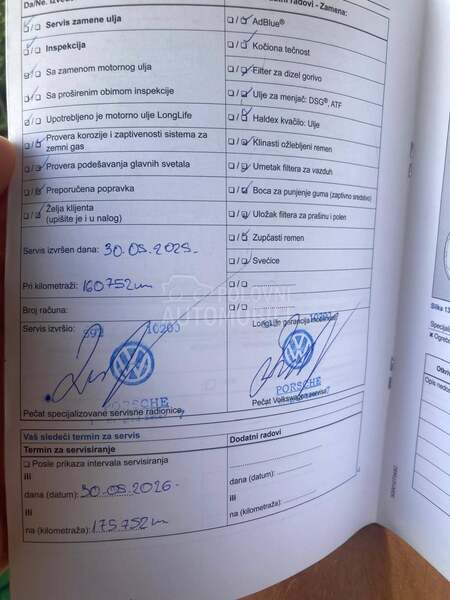 Da/Ne.
Radovi - Zamena:
☑/☐ Servis zamene ulja
☑/☐ Inspekcija
☑/☐ Sa zamenom motornog ulja
☑/☐ Sa proširenim obimom inspekcije
☑/☐ Upotrebljeno je motorno ulje LongLife
☐/☑ Provera korozije i zaptivenosti sistema za
zemni gas
☐/☑ Provera podešavanja glavnih svetala
☐/☑ Preporučena popravka
☐/☑ Želja klijenta
(upišite je i u nalog)
Servis izvršen dana: 30.05.2025.
Pri kilometraži: 160752km
Broj računa:
Servis izvršio:
10200
PORSCHE
Pečat specijalizovane servisne radionice
☐/☑ AdBlue®
☐/☑ Kočiona tečnost
☐/☑ Filter za dizel gorivo
☐/☑ Ulje za menjač: DSG®, ATF
☐/☑ Haldex kvačilo: Ulje
☐/☑ Klinasti ožlebljeni remen
☐/☑ Umetak filtera za vazduh
☐/☑ Boca za punjenje guma (zaptivno sredstvo)
☐/☑ Uložak filtera za prašinu i polen
☐/☑ Zupčasti remen
☐/☑ Svećice
LongLife garancija
PORSCHE
Pečat Volkswagen servisa
POLOVNI
AUTOMOBILI
Vaš sledeći termin za servis
Termin za servisiranje
☐ Posle prikaza intervala servisiranja
ili
dana (datum): 30.05.2026.
ili
na (kilometraža): 175.752km
Dodatni radovi
dana (datum):
ili
na (kilometraža):
Slika 13